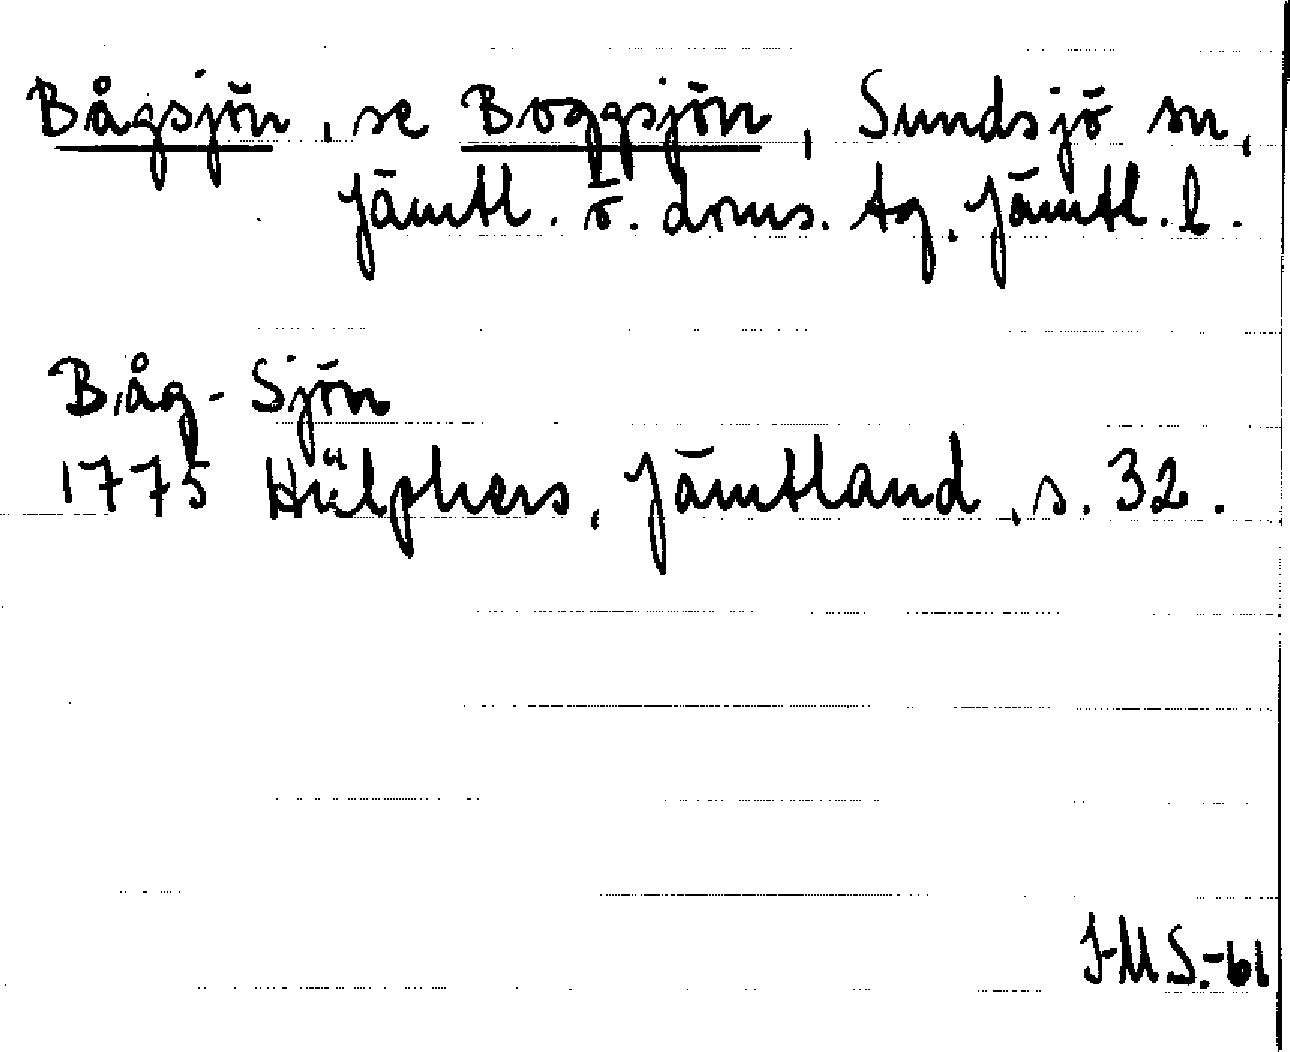 Bågsjön, se Boggsjön, Sundsjö sn,
Jämtl. ö. doms. tg. Jämtl. l.
Båg-Sjön
1775 Hülphers, Jämtland, s. 32.
I-M S.-61